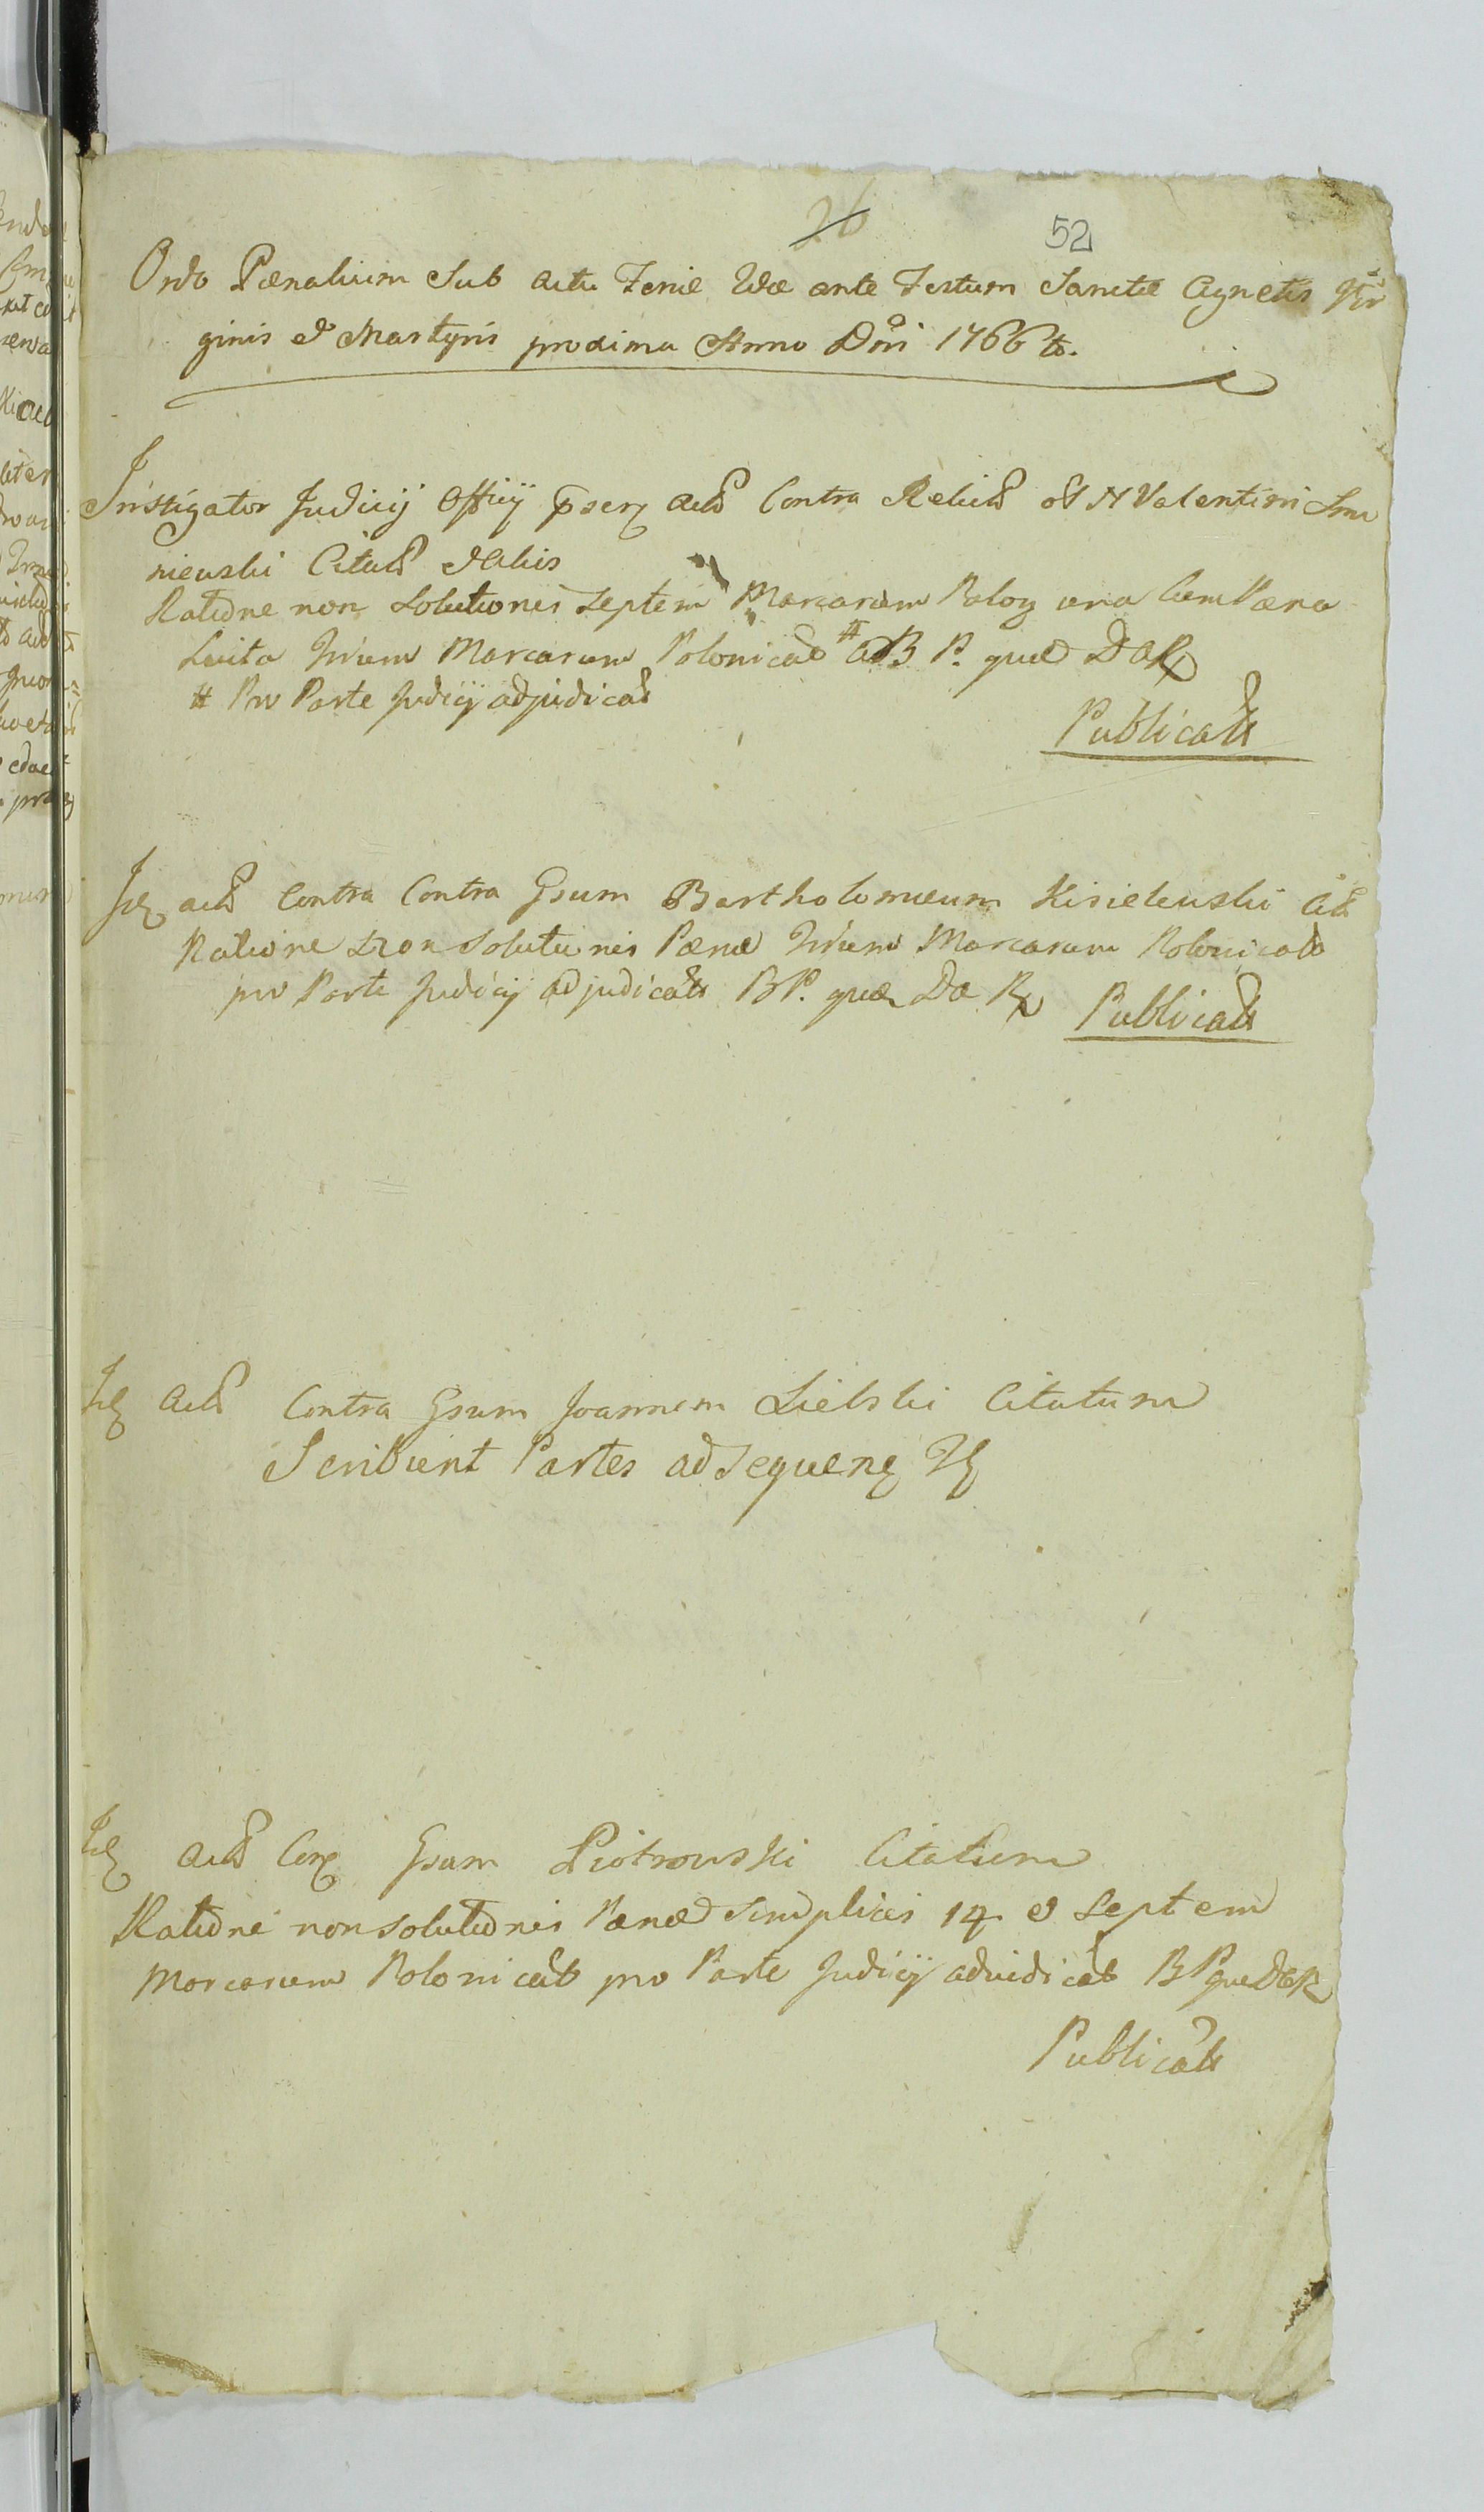 26
52
Ordo Pænalium Sub actu Feriæ IIdæ ante Festum Sanctæ Agnetis Vir
ginis et Martyris proxima Anno Dni 1766to.
Instigator Judicij Officij actor Contra Relict N Valentini
niewski Citat
Ratione non Solutionis Septem Marcarum Polon una cum Pæna
Luita Trium Marcarum Polonical # B P. quæ D a R
# Pro Parte Judicij adjudicat
Publicat
Id act Contra Contra Gsum Bartholomæum Kisielewski Cit
Ratione non Solutionis Pænæ Trium Marcarum Polonicali
pro Parte Judicij adjudicat B P. quæ D a R Publicat
Id act Contra Gsum Joannem Lielski Citatum
Scribunt Partes ad Sequen
Id act Con Gsum Piotrowski Citatum
Ratione non solutionis Pænæ Simplicis 14 et Septem
Marcarum Polonical pro Parte Judicij aduidicat B P quæ D a R
Publicat